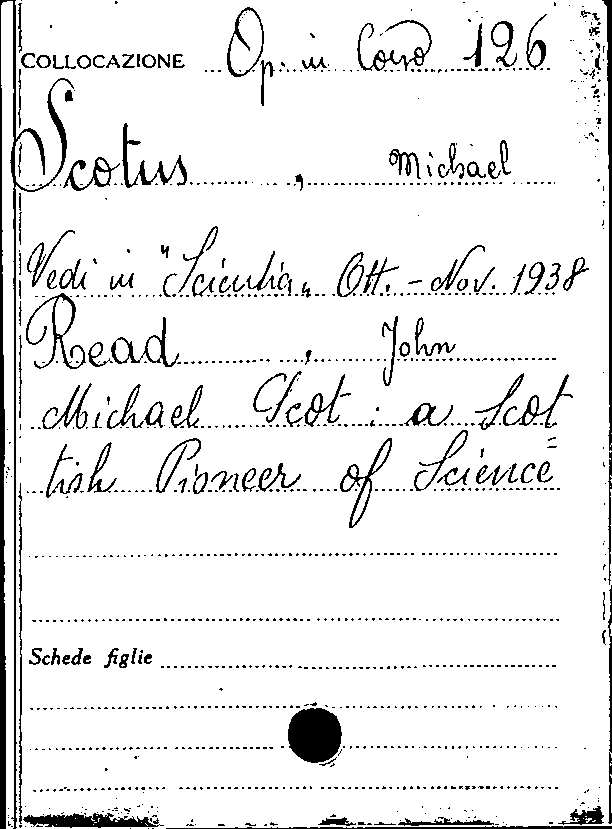 COLLOCAZIONE Op. in Corso 126
Scotus , Michael
Vedi in "Scientia„ Ott. - Nov. 1938
Read , John
Michael Scot : a Scot
=
tish Pioneer of Science
Schede figlie